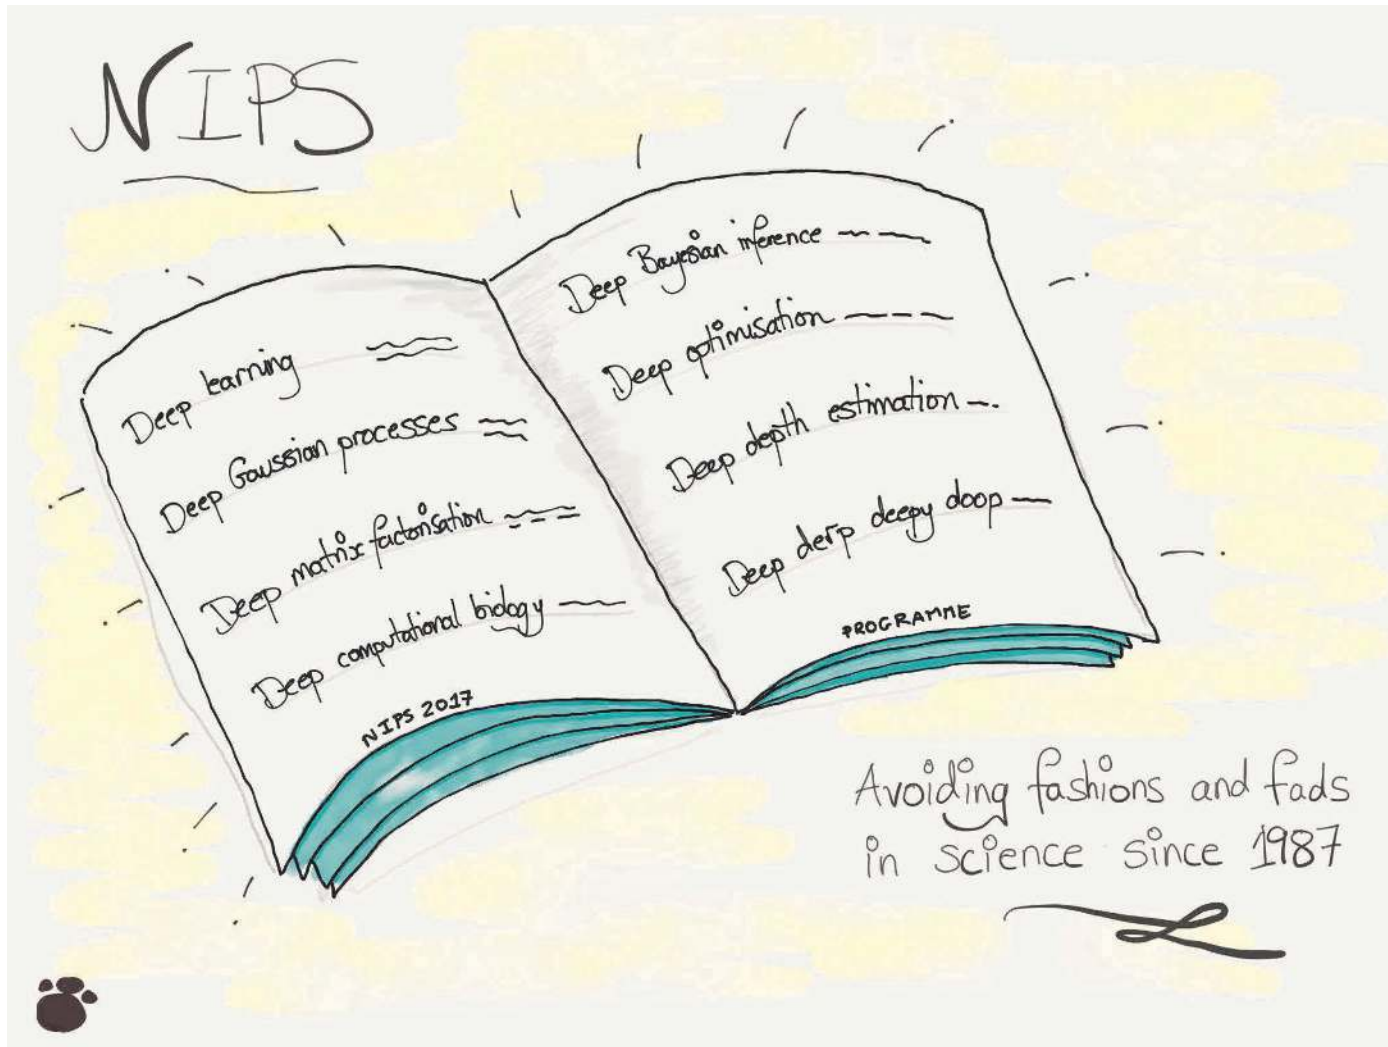 NIPS
Deep learning
Deep Gaussian processes
Deep matrix factorisation
Deep computational biology
NIPS 2017
Deep Bayesian inference
Deep optimisation
Deep depth estimation
Deep derp deepy doop
PROGRAMME
Avoiding fashions and fads
in science since 1987